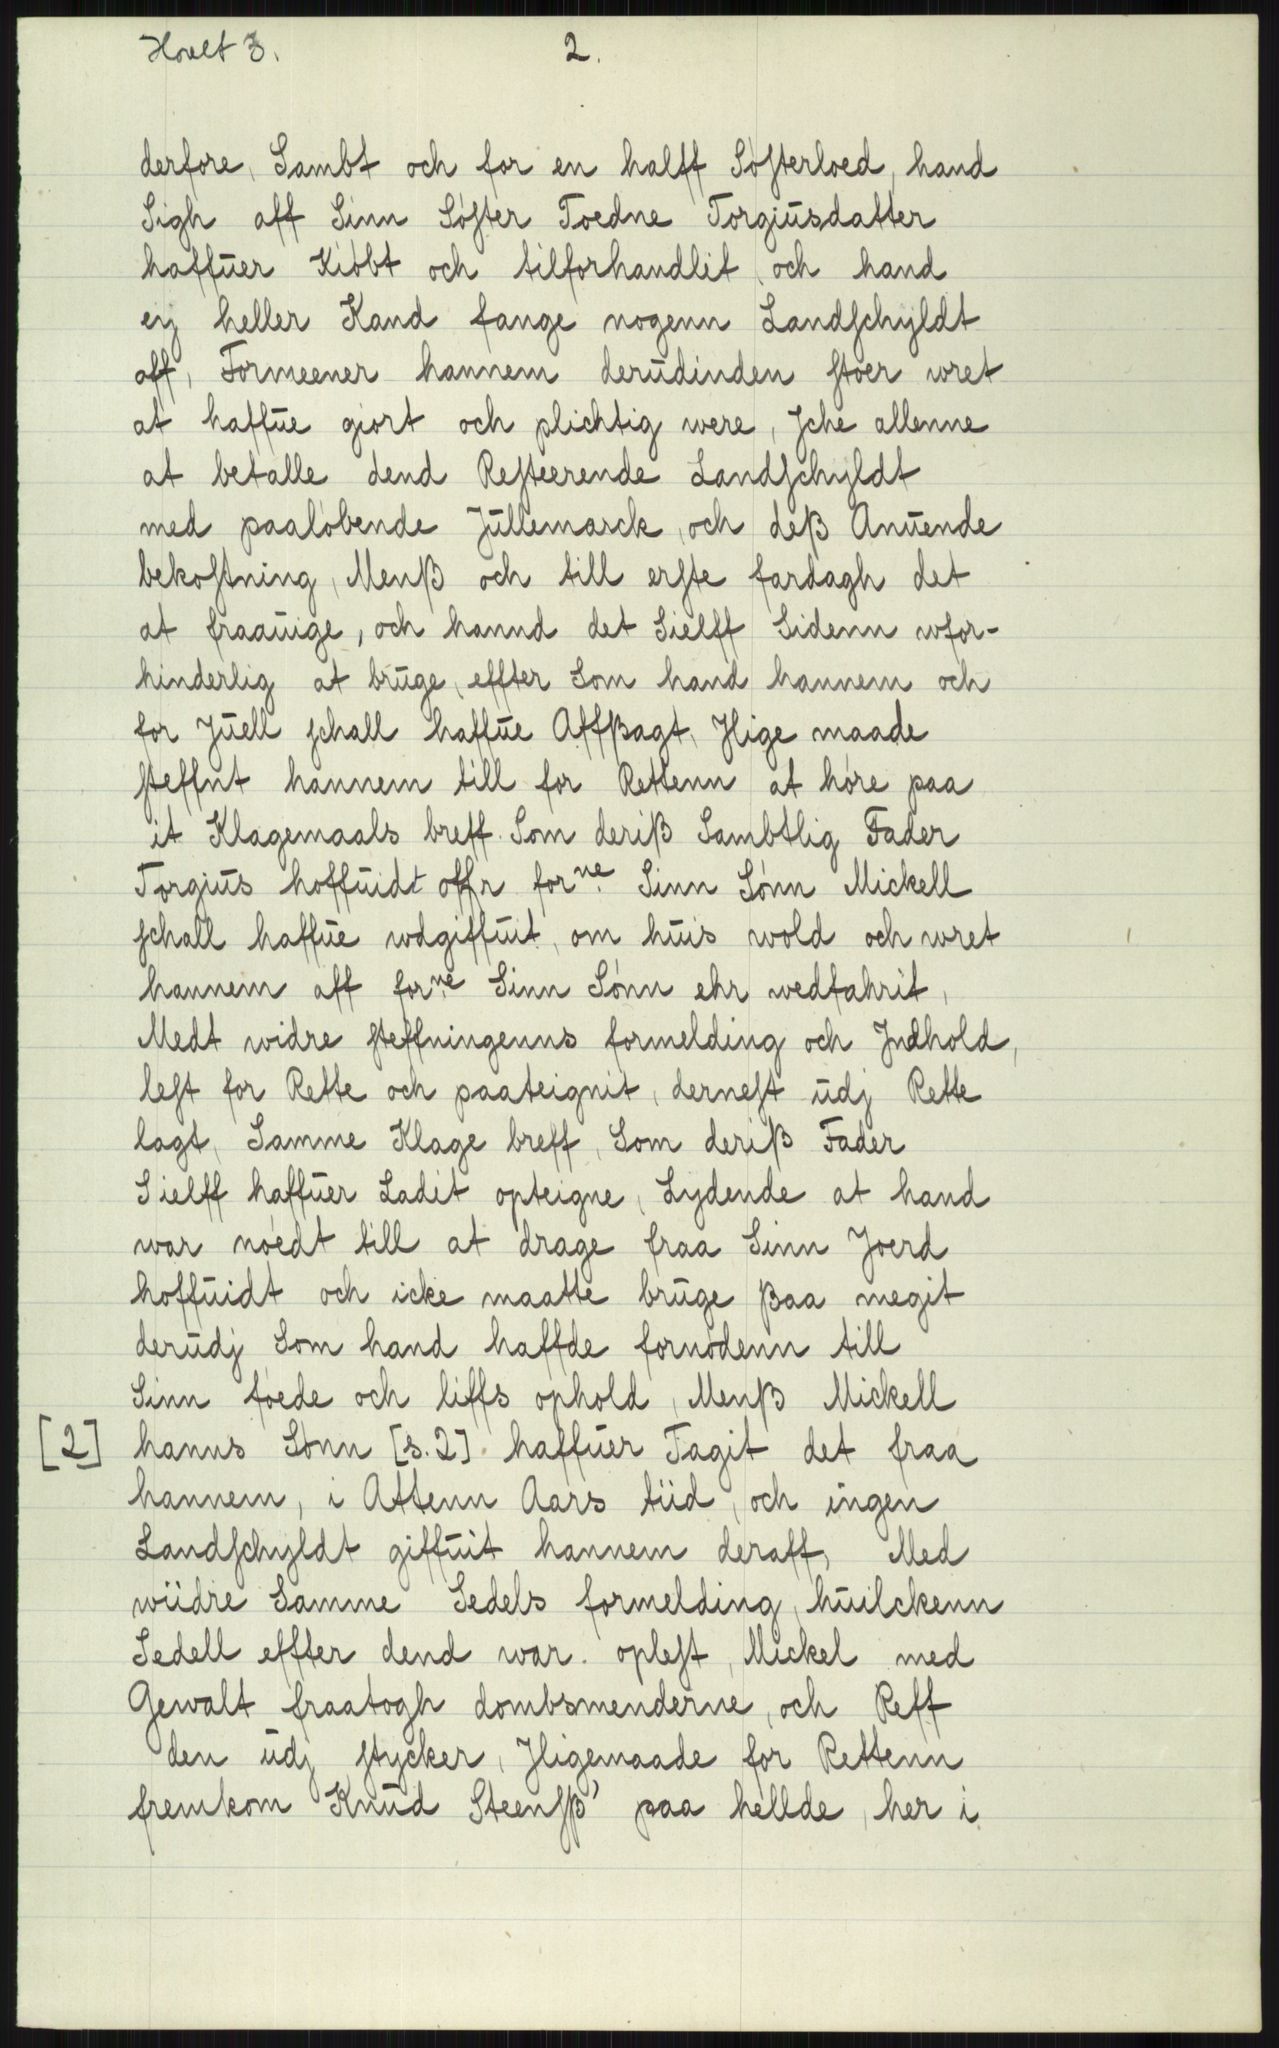 Hovlt 3. 2.
derfore, Sambt och for en halff Søsterloed, hand
Sigh aff Sinn Søster Toedne Torgiusdatter
haffuer Kiøbt och tilforhandlit, och hand
eij heller Kand fange nogenn Landschyldt
aff, Formeener hannem derudinden stoer wret
at haffue giort och plichtig were, Iche allenne
at betalle dend Resteerende Landschyldt
med paaløbende Jullemarck, och deß Anuende
bekostning, Menß och till erste fardagh det
at fraauige, och hannd det Sielff Sidenn wfor-
hinderlig at bruge, effter Som hand hannem och
for Juell schall haffue Affßagt, Ilige maade
steffnt hannem till for Rettenn at høre paa
it Klagemaals breff Som deriß Sambtlig Fader
Torgius hoffuidt offr forne. Sinn Sønn Mickell
schall haffue wdgiffuit, om huis wold och wret
hannem aff forne Sinn Sønn ehr wedfahrit,
Medt widre steffningenns formelding och Indhold,
lest for Rette och paateignit, dernest udj Rette
lagt, Samme Klage breff, Som deriß Fader
Sielff haffuer Ladit opteigne, Lydende at hand
war nøedt till at drage fraa Sinn Joerd
hoffuidt och icke maatte bruge ßaa megit
derudj Som hand haffde fornødenn till
Sinn føede och liffs ophold, Menß Mickell
[2] hanns Sønn [s.2] haffuer Tagit det fraa
hannem, i Attenn Aars tiid, och ingen
Landschyldt giffuit hannem deraff, Med
wiidre Samme Sedels formelding, huilckenn
Sedell effter dend war. oplest, Mickel med
Gewalt fraatogh dombsmenderne, och Reff
den udj stycker, Iligemaade for Rettenn
fremkom Knud Steensß' paa hellde, her i